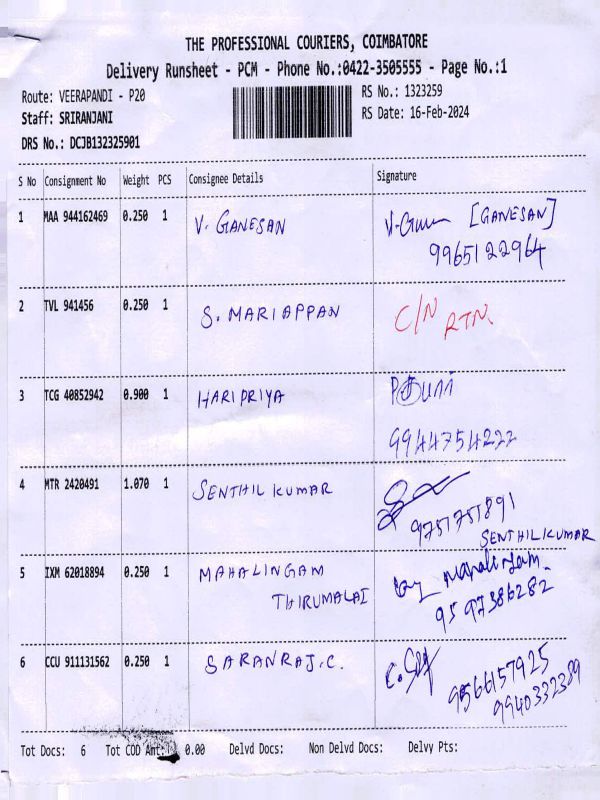 THE PROFESSIONAL COURIERS, COIMBATORE
Delivery Runsheet - PCM - Phone No.:0422-3505555 - Page No.:1
Route: VEERAPANDI - P20
RS No.: 1323259
Staff: SRIRANJANI
RS Date: 16-Feb-2024
DRS No.: DCJB132325901
S No Consignment No Weight PCS Consignee Details Signature
1 MAA 944162469 0.250 1 V. GANESAN [GANESAN]
9965122964
2 TVL 941456 0.250 1 S. MARIAPPAN C/N RTN.
3 TCG 40852942 0.900 1 HARIPRIYA
9944754222
4 MTR 2420491 1.070 1 SENTHIL KUMAR
9751751891
SENTHILKUMAR
5 IXM 62018894 0.250 1 MAHALINGAM
THIRUMALAI
9597386282
6 CCU 911131562 0.250 1 SARANRAJ.C.
9566157925
9940332389
Tot Docs: 6 Tot COD Amt: 0.00 Delvd Docs: Non Delvd Docs: Delvy Pts: